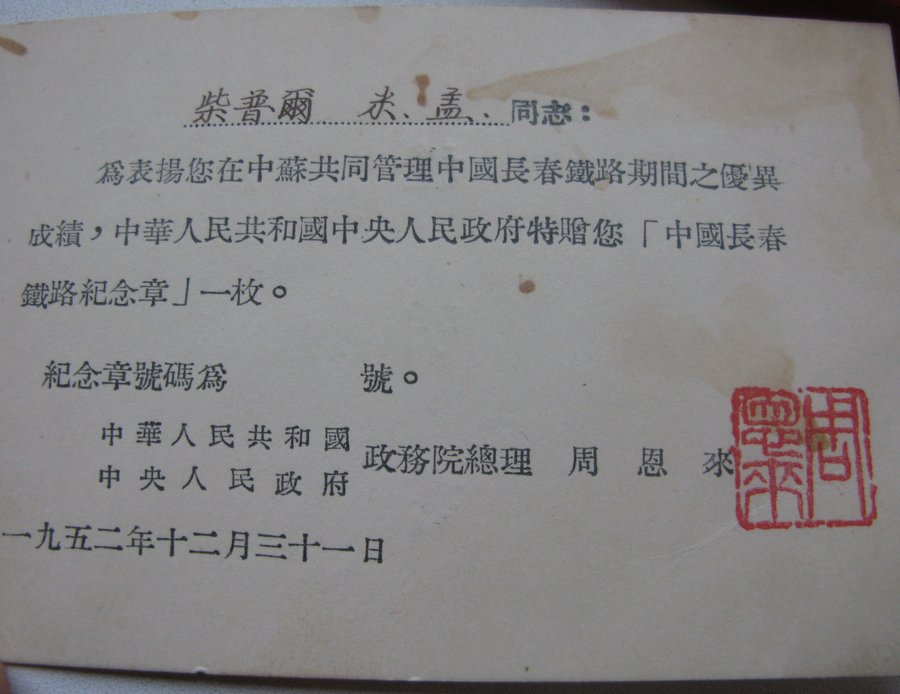 柴普爾 米.孟. 同志：
為表揚您在中蘇共同管理中國長春鐵路期間之優異
成績，中華人民共和國中央人民政府特贈您「中國長春
鐵路紀念章」一枚。
紀念章號碼為 號。
中華人民共和國
中央人民政府
政務院總理 周恩來
周恩來
一九五二年十二月三十一日